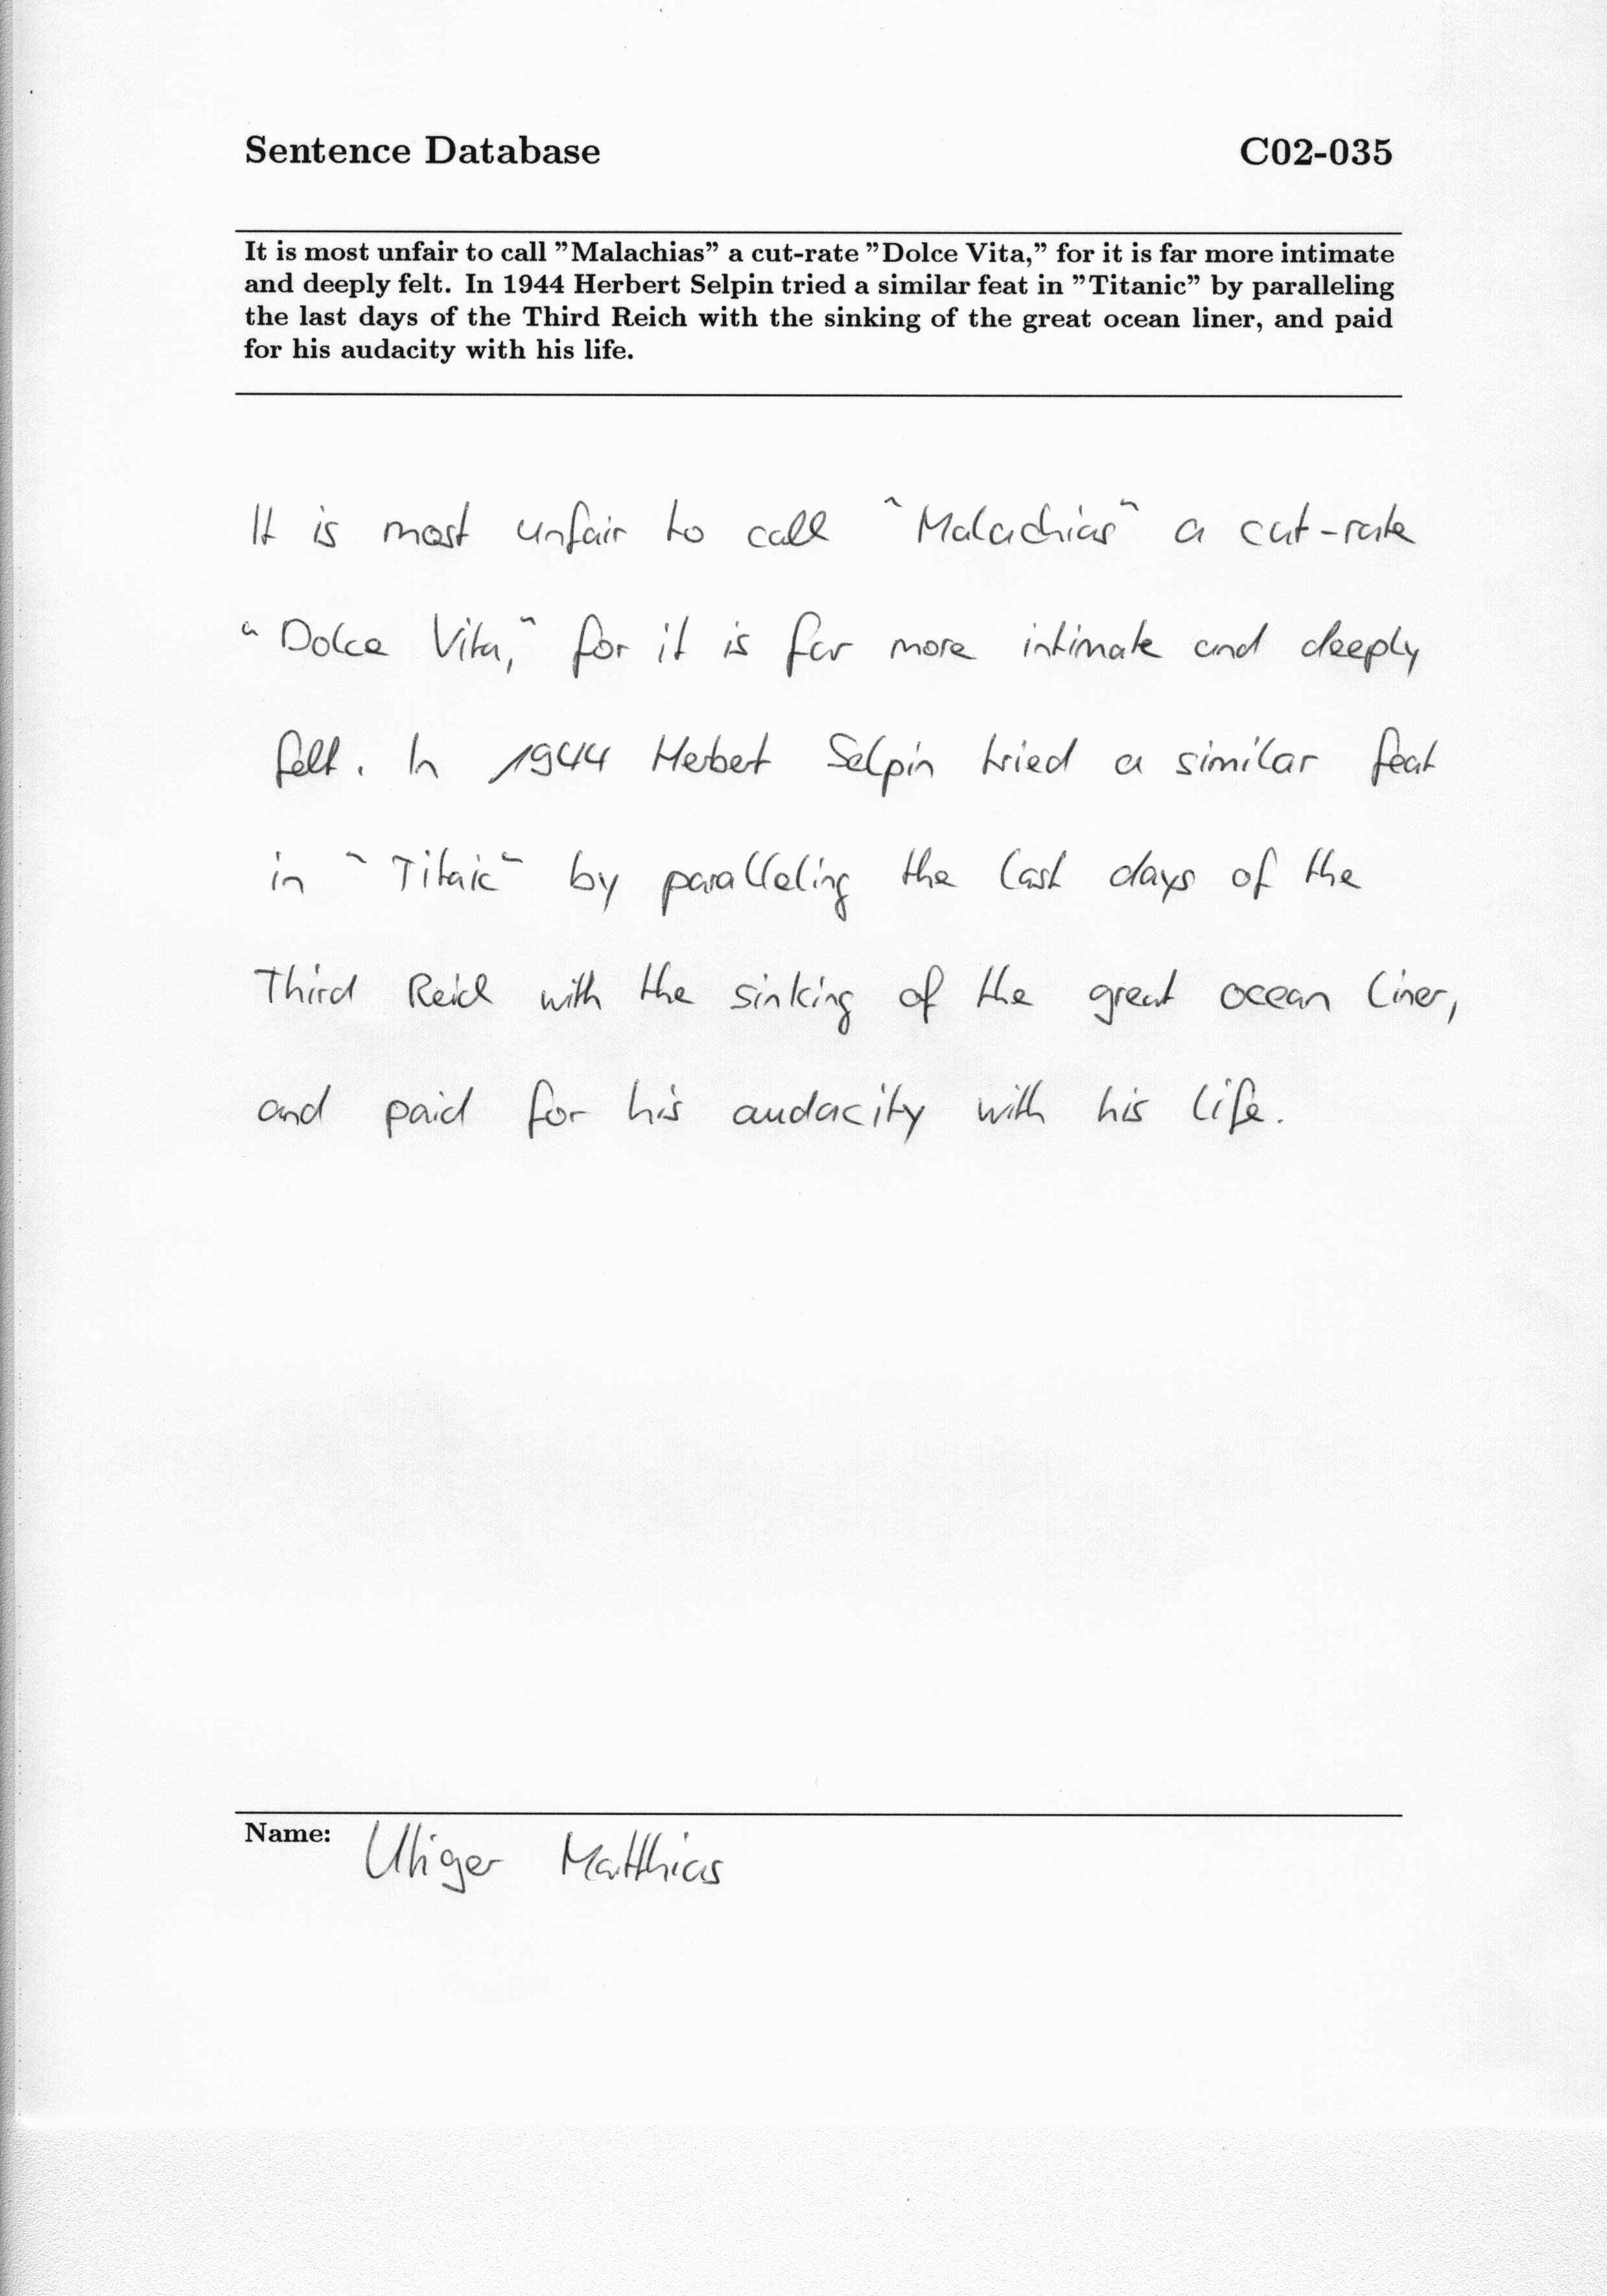 Sentence Database C02-035
It is most unfair to call ”Malachias” a cut-rate ”Dolce Vita,” for it is far more intimate
and deeply felt. In 1944 Herbert Selpin tried a similar feat in ”Titanic” by paralleling
the last days of the Third Reich with the sinking of the great ocean liner, and paid
for his audacity with his life.
It is most unfair to call "Malachias" a cut-rate
"Dolce Vita," for it is far more intimate and deeply
felt. In 1944 Herbert Selpin tried a similar feat
in "Titaic" by paralleling the last days of the
Third Reich with the sinking of the great ocean liner,
and paid for his audacity with his life.
Name: Uhiger Matthias